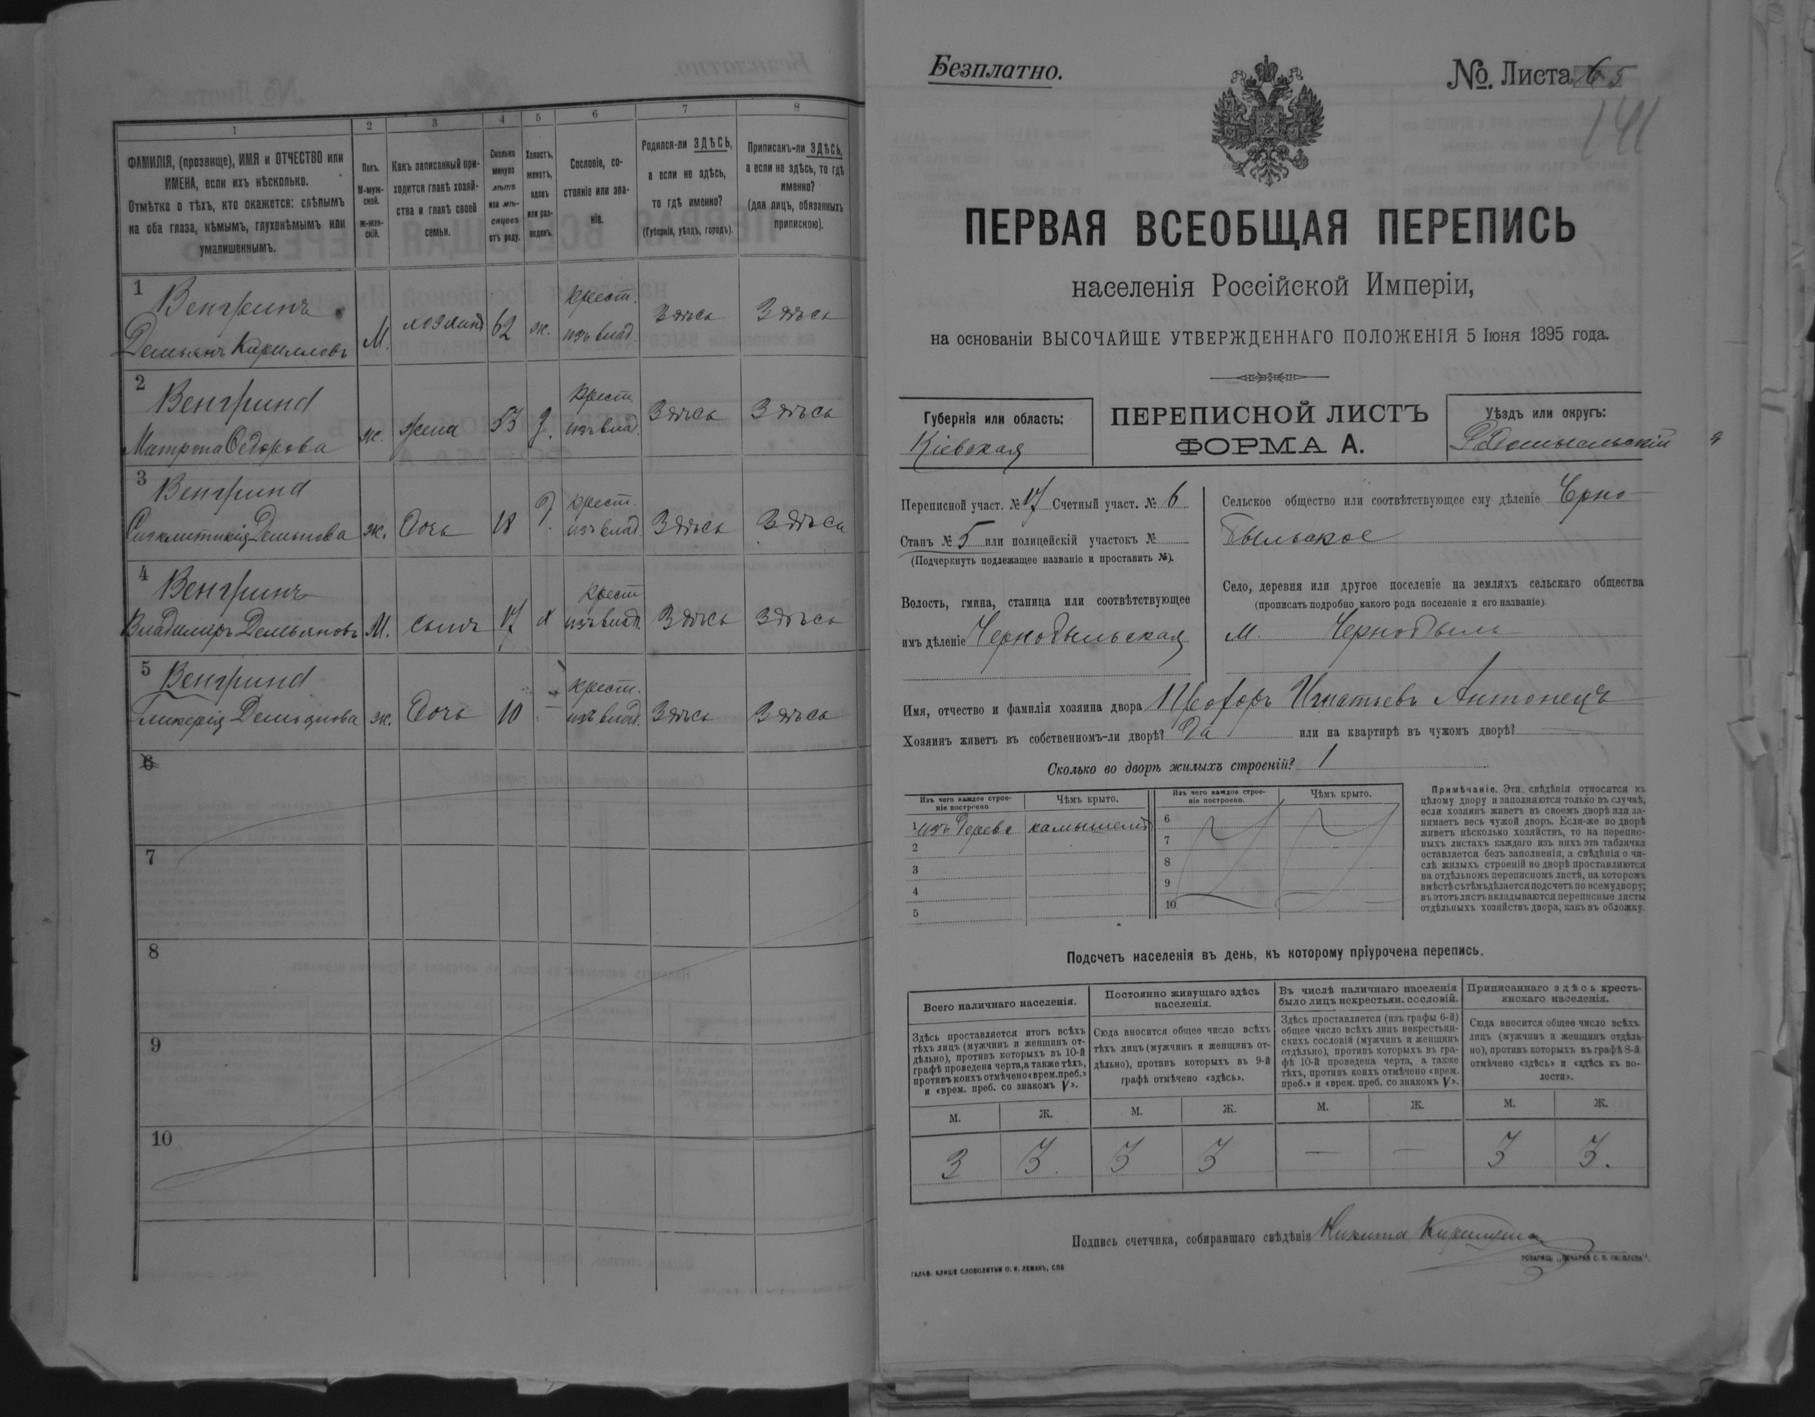 1
2
3
4
5
6
7
8
ФАМИЛІЯ, (прозвище), ИМЯ и ОТЧЕСТВО или
ИМЕНА, если ихъ нѣсколько.
Отмѣтка о тѣхъ, кто окажется: слѣпымъ
на оба глаза, нѣмымъ, глухонѣмымъ или
умалишеннымъ.
Полъ.
М-муж-
ской.
Ж-жен-
скій.
Какъ записанный при-
ходится главѣ хозяй-
ства и главѣ своей
семьи.
Сколько
минуло
лѣтъ
или мѣ-
сяцевъ
отъ роду.
Холостъ,
женатъ,
вдовъ
или раз-
веденъ.
Сословіе, со-
стояніе или зва-
ніе.
Родился-ли ЗДѢСЬ,
а если не здѣсь,
то гдѣ именно?
(Губернія, уѣздъ, городъ).
Приписанъ-ли ЗДѢСЬ,
а если не здѣсь, то гдѣ
именно?
(для лицъ, обязанныхъ
припискою).
1
Венгринъ
Демьянъ Кирилловъ М. хозяинъ 62 ж. крест. изъ влад. Здѣсь Здѣсь
2
Венгрина
Матрона Федорова ж. жена 53 з. крест. изъ влад. Здѣсь Здѣсь
3
Венгрина
Синклитикія Демьянова ж. дочь 18 крест. изъ влад. Здѣсь Здѣсь
4
Венгринъ
Владимиръ Демьяновъ М. сынъ 17 х крест. изъ влад. Здѣсь Здѣсь
5
Венгрина
Гликерія Демьянова ж. дочь 10 крест. изъ влад. Здѣсь Здѣсь
6
7
8
9
10
Безплатно.
№. Листа 65
141
ПЕРВАЯ ВСЕОБЩАЯ ПЕРЕПИСЬ
населенія Россійской Имперіи,
на основаніи ВЫСОЧАЙШЕ УТВЕРЖДЕННАГО ПОЛОЖЕНІЯ 5 Іюня 1895 года.
Губернія или область:
Кіевская
ПЕРЕПИСНОЙ ЛИСТЪ
ФОРМА А.
Уѣздъ или округъ:
Радомысльскій
Переписной участ. № 17 Счетный участ. № 6
Станъ № 5 или полицейскій участокъ №
(Подчеркнуть подлежащее названіе и проставить №).
Волость, гмина, станица или соотвѣтствующее
имъ дѣленіе Чернобыльская
Сельское общество или соотвѣтствующее ему дѣленіе Черно-
быльское
Село, деревня или другое поселеніе на земляхъ сельскаго общества
(прописать подробно, какого рода поселеніе и его названіе)
М. Чернобыль
Имя, отчество и фамилія хозяина двора Игнатьевъ Антонецъ
Хозяинъ живетъ въ собственномъ-ли дворѣ? Да или на квартирѣ въ чужомъ дворѣ?
Сколько во дворѣ жилыхъ строеній? 1
Изъ чего каждое строе-
ніе построено
Чѣмъ крыто.
Изъ чего каждое строе-
ніе построено.
Чѣмъ крыто.
1 изъ дерева камышемъ
2
3
4
5
6
7
8
9
10
Примѣчаніе. Эти свѣдѣнія относятся къ
цѣлому двору и заполняются только въ случаѣ,
если хозяинъ живетъ въ своемъ дворѣ или за-
нимаетъ весь чужой дворъ. Если-же во дворѣ
живетъ нѣсколько хозяйствъ, то на перепис-
ныхъ листахъ каждаго изъ нихъ эта табличка
оставляется безъ заполненія, а свѣдѣнія о чи-
слѣ жилыхъ строеній во дворѣ проставляются
на отдѣльномъ переписномъ листѣ, на которомъ
вмѣстѣ съ тѣмъ дѣлается подсчетъ по всему двору;
въ этотъ листъ вкладываются переписные листы
отдѣльныхъ хозяйствъ двора, какъ въ обложку.
Подсчетъ населенія въ день, къ которому пріурочена перепись.
Всего наличнаго населенія.
Постоянно живущаго здѣсь
населенія.
Въ числѣ наличнаго населенія
было лицъ некрестьян. сословій.
Приписаннаго здѣсь кресть-
янскаго населенія.
Здѣсь проставляется итогъ всѣхъ
тѣхъ лицъ (мужчинъ и женщинъ от-
дѣльно), противъ которыхъ въ 10-й
графѣ проведена черта, а также тѣхъ,
противъ коихъ отмѣчено «врем. преб.»
и «врем. преб. со знакомъ V».
Сюда вносится общее число всѣхъ
тѣхъ лицъ (мужчинъ и женщинъ от-
дѣльно), противъ которыхъ въ 9-й
графѣ отмѣчено «здѣсь».
Здѣсь проставляется (изъ графы 6-й)
общее число всѣхъ лицъ некрестьян-
скихъ сословій (мужчинъ и женщинъ
отдѣльно), противъ которыхъ въ гра-
фѣ 10-й проведена черта, а также
тѣхъ, противъ коихъ отмѣчено «врем.
преб.» и «врем. преб. со знакомъ V».
Сюда вносится общее число всѣхъ
лицъ (мужчинъ и женщинъ отдѣль-
но), противъ которыхъ въ графѣ 8-й
отмѣчено «здѣсь» и «здѣсь къ во-
лости».
М. Ж. М. Ж. М. Ж. М. Ж.
3 3. 3 3 — — 3 3.
Подпись счетчика, собиравшаго свѣдѣнія Никита
ГАЛЬВ. КЛИШЕ СЛОВОЛИТНИ О. И. ЛЕМАНЪ, СПБ
ТОВАРИЩ. „ПЕЧАТНЯ С. П. ЯКОВЛЕВА“.